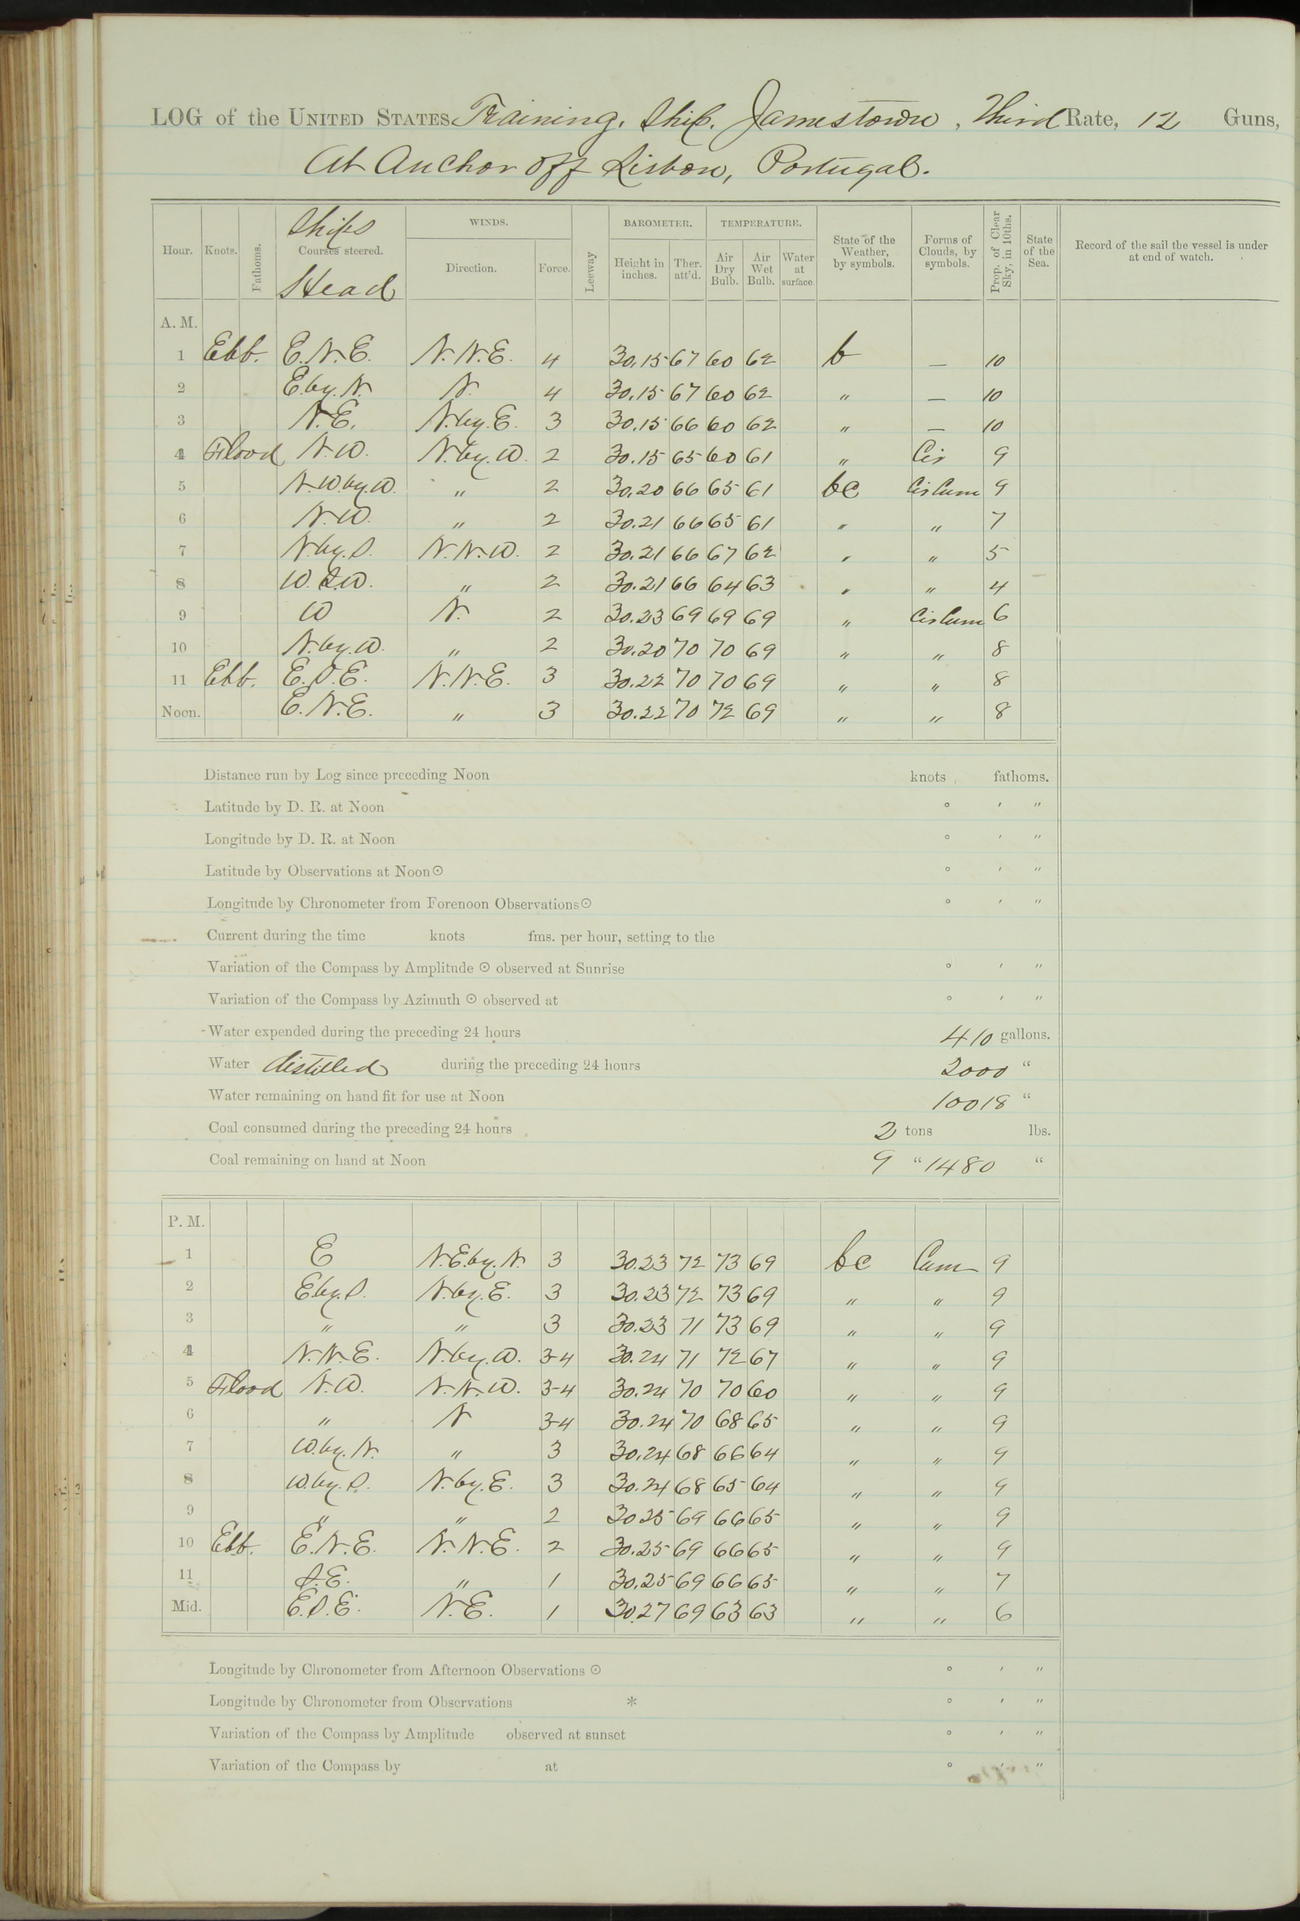 LOG of the UNITED STATES Training Ship Jamestown, Third Rate, 12 Guns,
At Anchor off Lisbon, Portugal.
Hour. Knots. Fathoms. Ships Courses steered. Head WINDS. Direction. Force. Leeway BAROMETER. Height in inches. Ther. att'd. TEMPERATURE. Air Dry Bulb. Air Wet Bulb. Water at surface. State of the Weather, by symbols. Forms of Clouds, by symbols. Prop. of Clear Sky, in 10ths. State of the Sea. Record of the sail the vessel is under at end of watch.
A. M.
1 Ebb. E.N.E. N.N.E. 4 30.15 67 60 62 b — 10
2 E.by.N. N. 4 30.15 67 60 62 " — 10
3 N.E. N.by.E. 3 30.15 66 60 62 " — 10
4 Flood N.W. N.by.W. 2 30.15 65 60 61 " Cir 9
5 N.W.by.W. " 2 30.20 66 65 61 bc Cir Cum 9
6 N.W. " 2 30.21 66 65 61 " " 7
7 N.by.S. N.N.W. 2 30.21 66 67 62 " " 5
8 W.S.W. " 2 30.21 66 64 63 " " 4
9 W N. 2 30.23 69 69 69 " Cir Cum 6
10 N.by.W. " 2 30.20 70 70 69 " " 8
11 Ebb. E.S.E. N.N.E. 3 30.22 70 70 69 " " 8
Noon. E.N.E. " 3 30.22 70 72 69 " " 8
Distance run by Log since preceding Noon knots fathoms.
Latitude by D. R. at Noon ° ' "
Longitude by D. R. at Noon ° ' "
Latitude by Observations at Noon ☉ ° ' "
Longitude by Chronometer from Forenoon Observations ☉ ° ' "
Current during the time knots fms. per hour, setting to the
Variation of the Compass by Amplitude ☉ observed at Sunrise ° ' "
Variation of the Compass by Azimuth ☉ observed at ° ' "
Water expended during the preceding 24 hours 410 gallons.
Water distilled during the preceding 24 hours 2000 "
Water remaining on hand fit for use at Noon 10018 "
Coal consumed during the preceding 24 hours 2 tons lbs.
Coal remaining on hand at Noon 9 " 1480 "
P. M.
1 E N.E.by.N. 3 30.23 72 73 69 bc Cum 9
2 E.by.S. N.by.E. 3 30.23 72 73 69 " " 9
3 " " 3 30.23 71 73 69 " " 9
4 N.N.E. N.by.W. 3-4 30.24 71 72 67 " " 9
5 Flood N.W. N.N.W. 3-4 30.24 70 70 60 " " 9
6 " N 3-4 30.24 70 68 65 " " 9
7 W.by.N. " 3 30.24 68 66 64 " " 9
8 W.by.S. N.by.E. 3 30.24 68 65 64 " " 9
9 " " 2 30.25 69 66 65 " " 9
10 Ebb. E.N.E. N.N.E. 2 30.25 69 66 65 " " 9
11 S.E. " 1 30.25 69 66 65 " " 7
Mid. E.S.E. N.E. 1 30.27 69 63 63 " " 6
Longitude by Chronometer from Afternoon Observations ☉ ° ' "
Longitude by Chronometer from Observations * ° ' "
Variation of the Compass by Amplitude observed at sunset ° ' "
Variation of the Compass by at ° ' "